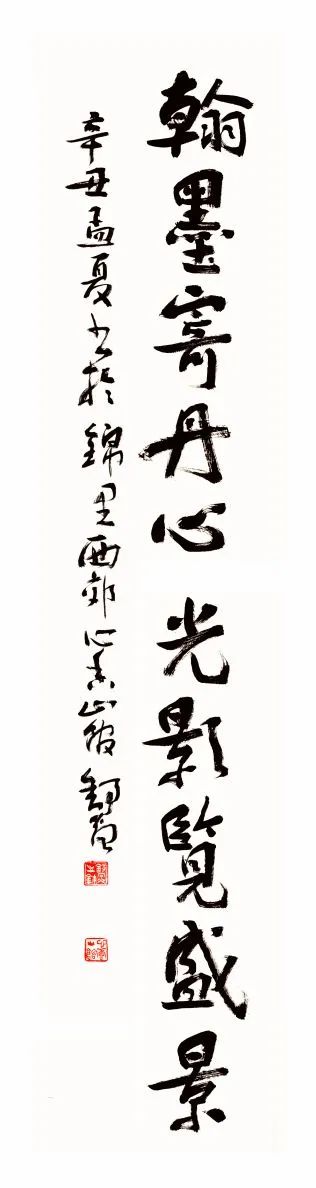 翰墨寄丹心 光影覽盛景
辛丑孟夏书於錦里西郊心斋山館